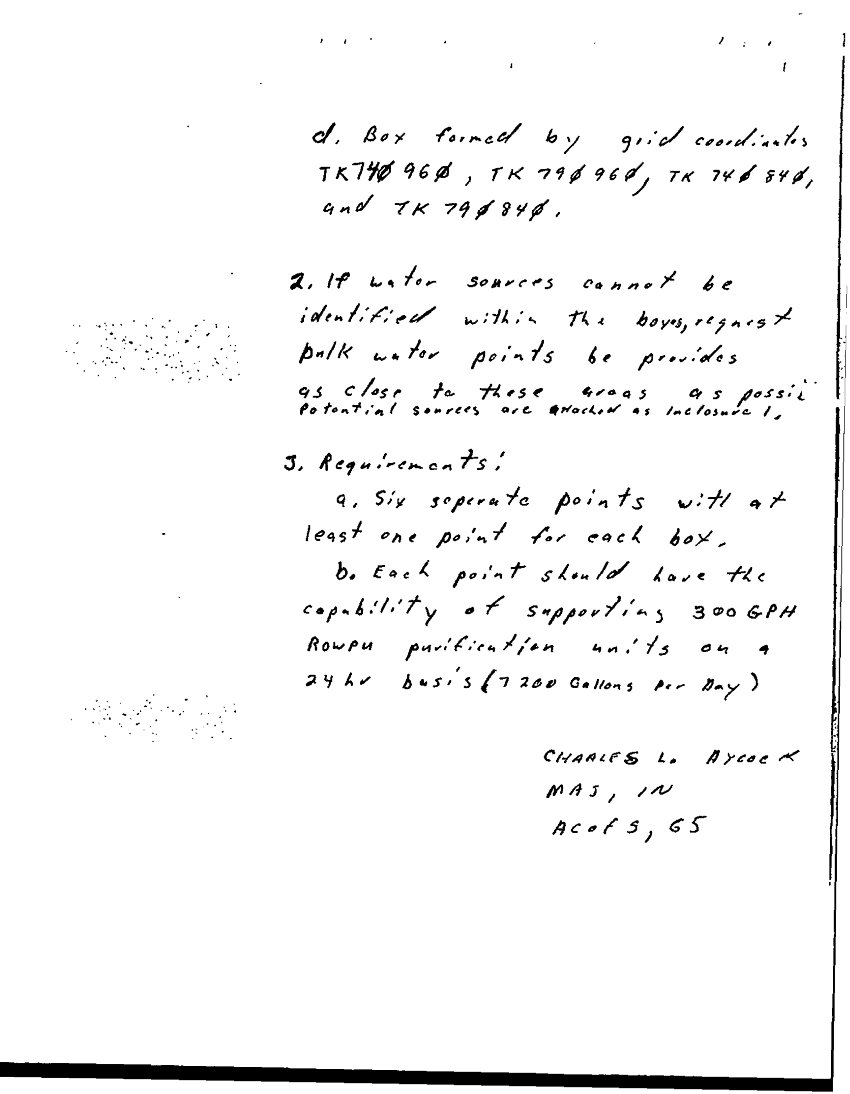 d. Box formed by grid coordinates
TK74Ø96Ø, TK 79Ø96Ø, TK 74Ø84Ø,
and TK 79Ø84Ø.
2. If water sources cannot be
identified within the boxes, request
bulk water points be provides
as close to these areas as possi
Potential sources are attached as Inclosure 1.
3. Requirements:
a. Six seperate points witl at
least one point for each box.
b. Each point should have the
capability of supporting 300 GPH
Rowpu purification units on a
24 hr basis (7200 Gallons Per Day)
CHARLES L. AYCOCK
MAJ, IN
ACofS, G5